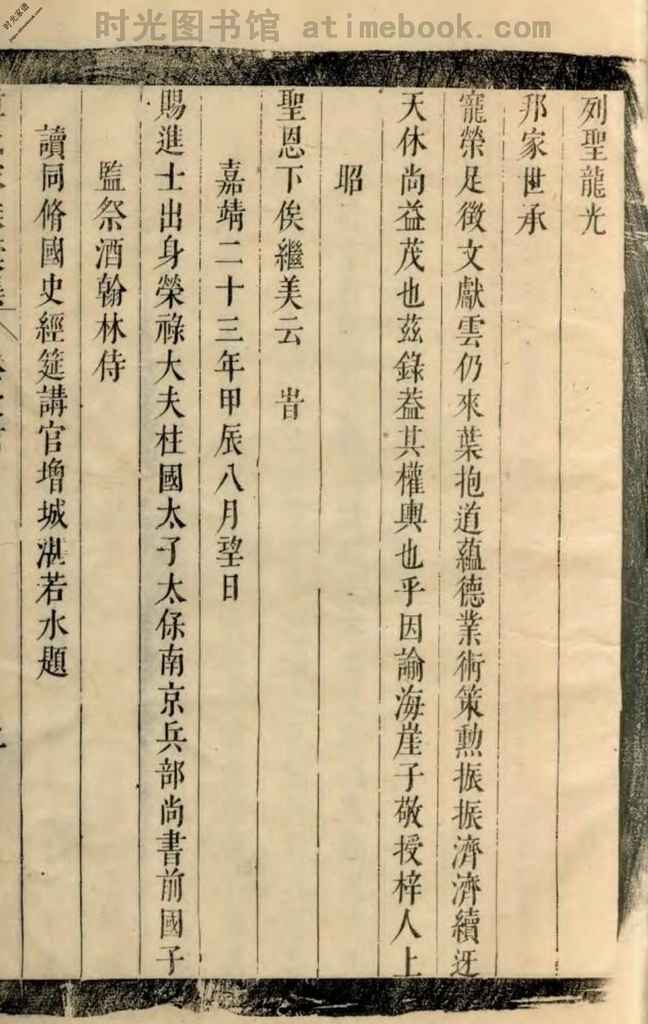 时光图书馆 atimebook.com
时光家谱
列聖龍光
邦家世承
寵榮足徵文獻雲仍來葉抱道蘊德業術策勲振振濟濟續迓
天休尚益茂也茲錄葢其權輿也乎因諭海崖子敬授梓人上
昭
聖恩下俟繼美云 旹
嘉靖二十三年甲辰八月望日
賜進士出身榮祿大夫柱國太子太保南京兵部尚書前國子
監祭酒翰林侍
讀同脩國史經筵講官增城湛若水題